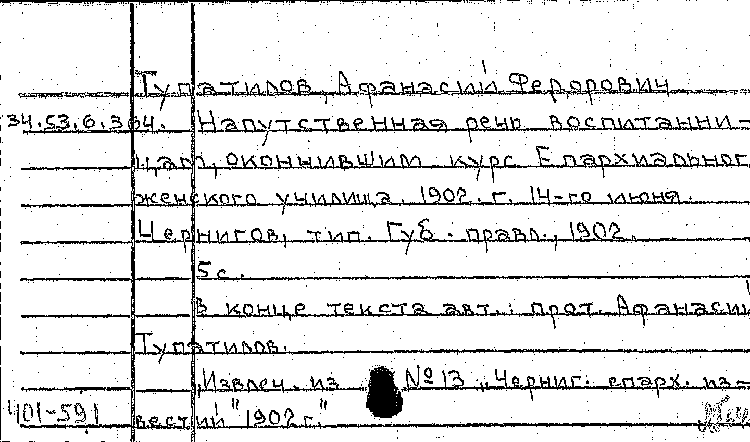 Тупатилов, Афанасий Федорович
34.53.6.364. Напутственная речь воспитанни-
цам, окончившим курс Епархиального
женского училища. 1902. г. 14-го июня.
Чернигов, тип. Губ. правл., 1902.
5 с.
В конце текста авт.: прот. Афанасий
Тупатилов.
Извлеч. из № 13 „Черниг. епарх. из-
401-591 вестий" 1902 г."